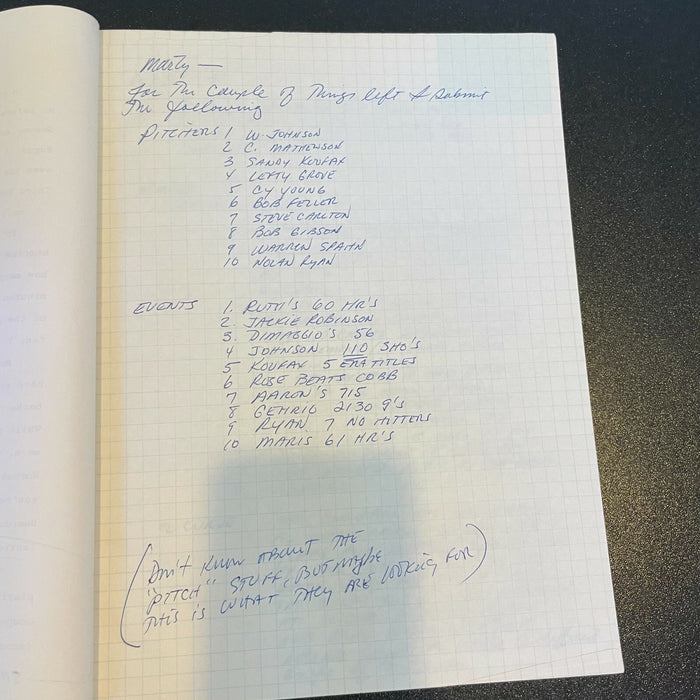 Marty —
For The Couple of Things left I submit
The following
PITCHERS 1 W. JOHNSON
2 C. MATHEWSON
3 SANDY KOUFAX
4 LEFTY GROVE
5 CY YOUNG
6 BOB FELLER
7 STEVE CARLTON
8 BOB GIBSON
9 WARREN SPAHN
10 NOLAN RYAN
EVENTS 1. RUTH'S 60 HR'S
2. JACKIE ROBINSON
3. DIMAGGIO'S 56
4 JOHNSON 110 SHO'S
5 KOUFAX 5 ERA TITLES
6 ROSE BEATS COBB
7 AARON'S 715
8 GEHRIG 2130 G'S
9 RYAN 7 NO HITTERS
10 MARIS 61 HR'S
(DON'T KNOW ABOUT THE
"PITCH" STUFF, BUT MAYBE
THIS IS WHAT THEY ARE LOOKING FOR)